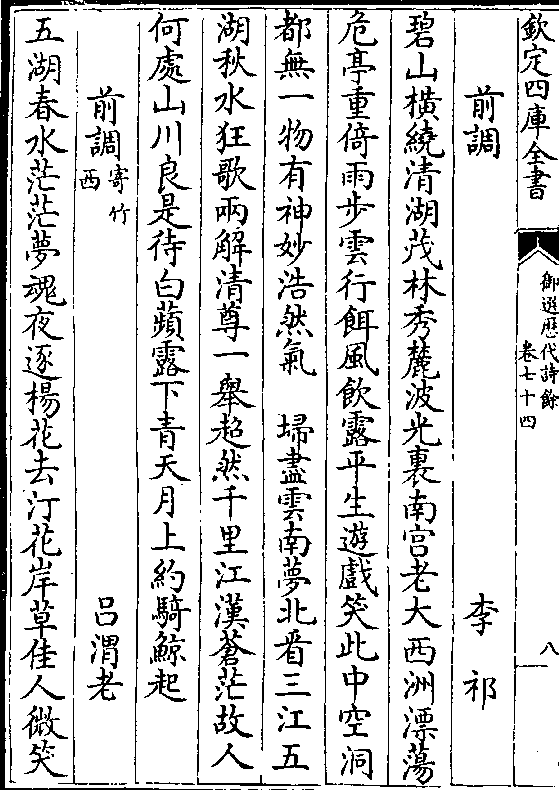 欽定四庫全書
御選歷代詩餘
卷七十四
八
前調
李祁
碧山橫繞清湖茂林秀麓波光裏南宮老大西洲漂蕩
危亭重倚雨步雲行餌風飲露平生遊戲笑此中空洞
都無一物有神妙浩然氣 掃盡雲南夢北看三江五
湖秋水狂歌兩解清尊一舉超然千里江漢蒼茫故人
何處山川良是待白蘋露下青天月上約騎鯨起
前調寄竹西
呂渭老
五湖春水茫茫夢魂夜逐楊花去汀花岸草佳人微笑